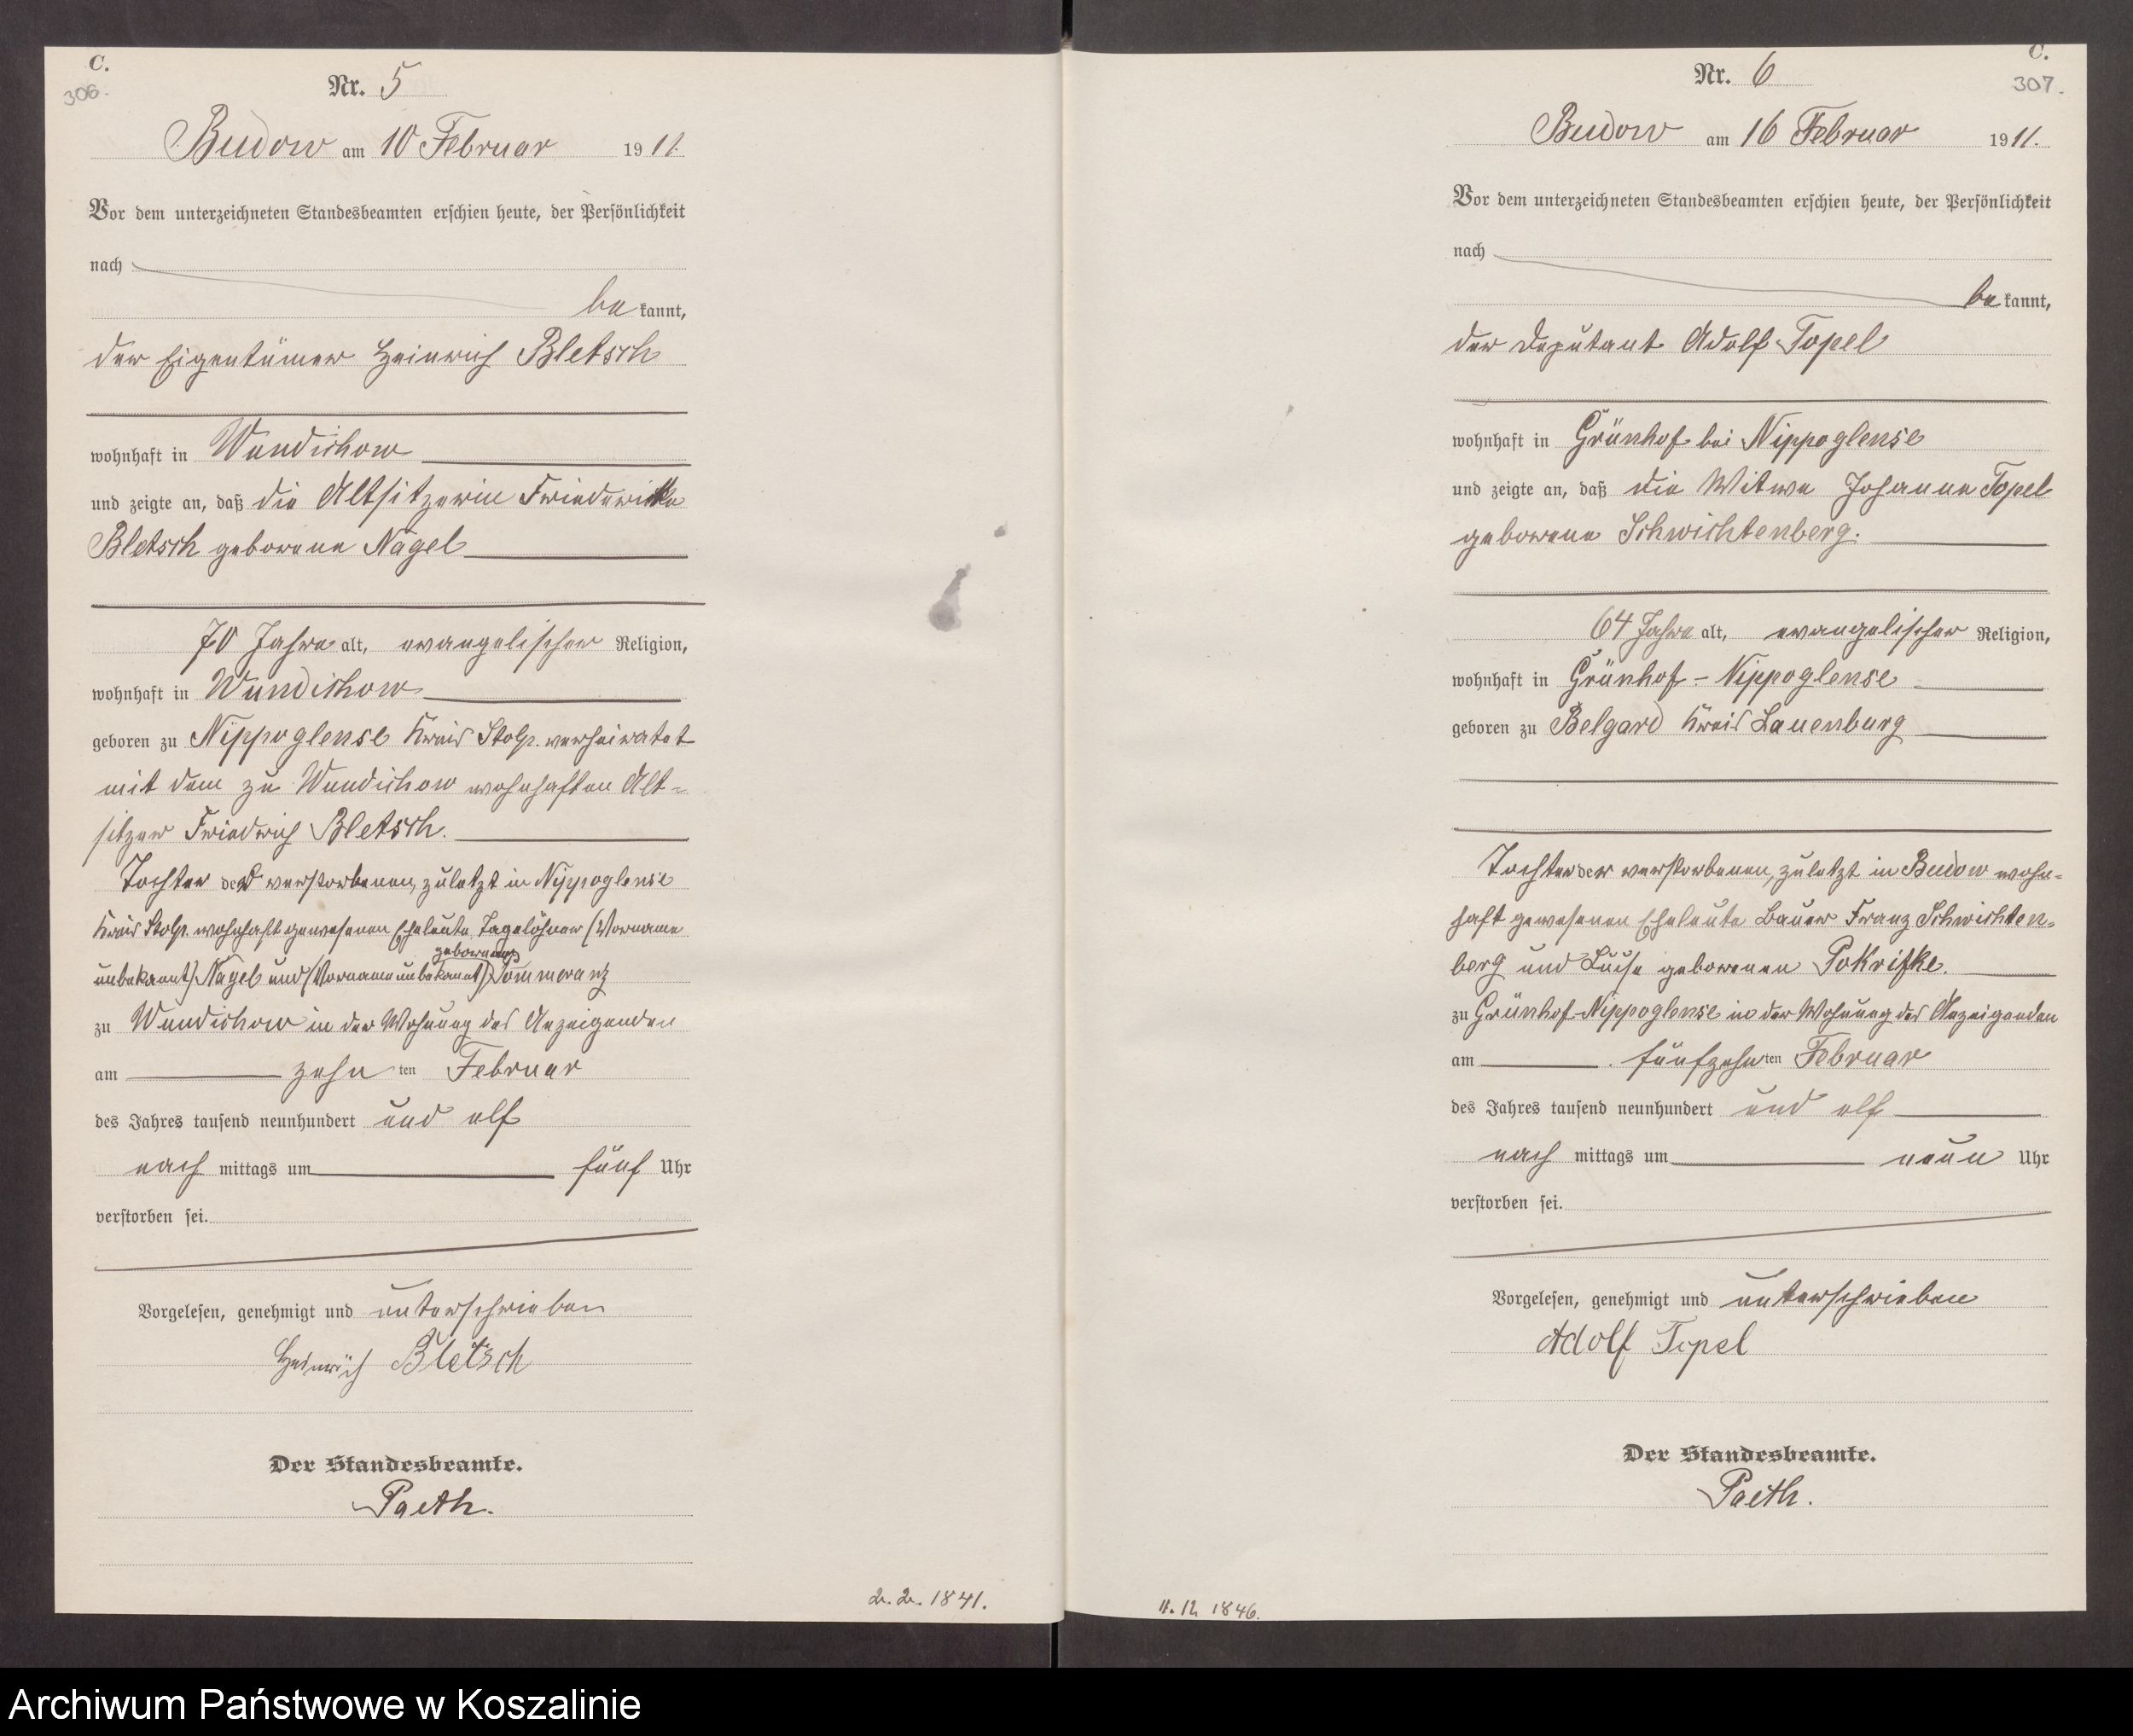 C.
306.
Nr. 5
Budow am 10 Februar 1911.
Vor dem unterzeichneten Standesbeamten erschien heute, der Persönlichkeit
nach
bekannt,
der Eigentümer Heinrich Bletsch
wohnhaft in Wundichow
und zeigte an, daß die Altsitzerin Friederike
Bletsch geborene Nagel
70 Jahre alt, evangelischer Religion,
wohnhaft in Wundichow
geboren zu Nippoglense Kreis Stolp. verheiratet
mit dem zu Wundichow wohnhaften Alt-
sitzer Friedrich Bletsch.
Tochter der verstorbenen, zuletzt in Nippoglense
Kreis Stolp. wohnhaft gewesenen Eheleute Tagelöhner (Vorname
geborenen
unbekannt) Nagel und (Vorname unbekannt) Pommeranz
zu Wundichow in der Wohnung des Anzeigenden
am zehnten Februar
des Jahres tausend neunhundert und elf
nachmittags um fünf Uhr
verstorben sei.
Vorgelesen, genehmigt und unterschrieben
Heinrich Bletsch
Der Standesbeamte.
Paeth.
2. 2. 1841.
C.
307.
Nr. 6
Budow am 16 Februar 1911.
Vor dem unterzeichneten Standesbeamten erschien heute, der Persönlichkeit
nach
bekannt,
der Deputant Adolf Topel
wohnhaft in Grünhof bei Nippoglense
und zeigte an, daß die Witwe Johanne Topel
geborene Schwichtenberg.
64 Jahre alt, evangelischer Religion,
wohnhaft in Grünhof - Nippoglense
geboren zu Belgard Kreis Lauenburg
Tochter der verstorbenen, zuletzt in Budow wohn-
haft gewesenen Eheleute Bauer Franz Schwichten-
berg und Luise geborenen Pokrifke.
zu Grünhof-Nippoglense in der Wohnung des Anzeigenden
am fünfzehnten Februar
des Jahres tausend neunhundert und elf
nachmittags um neun Uhr
verstorben sei.
Vorgelesen, genehmigt und unterschrieben
Adolf Topel
Der Standesbeamte.
Paeth.
11. 12. 1846.
Archiwum Państwowe w Koszalinie